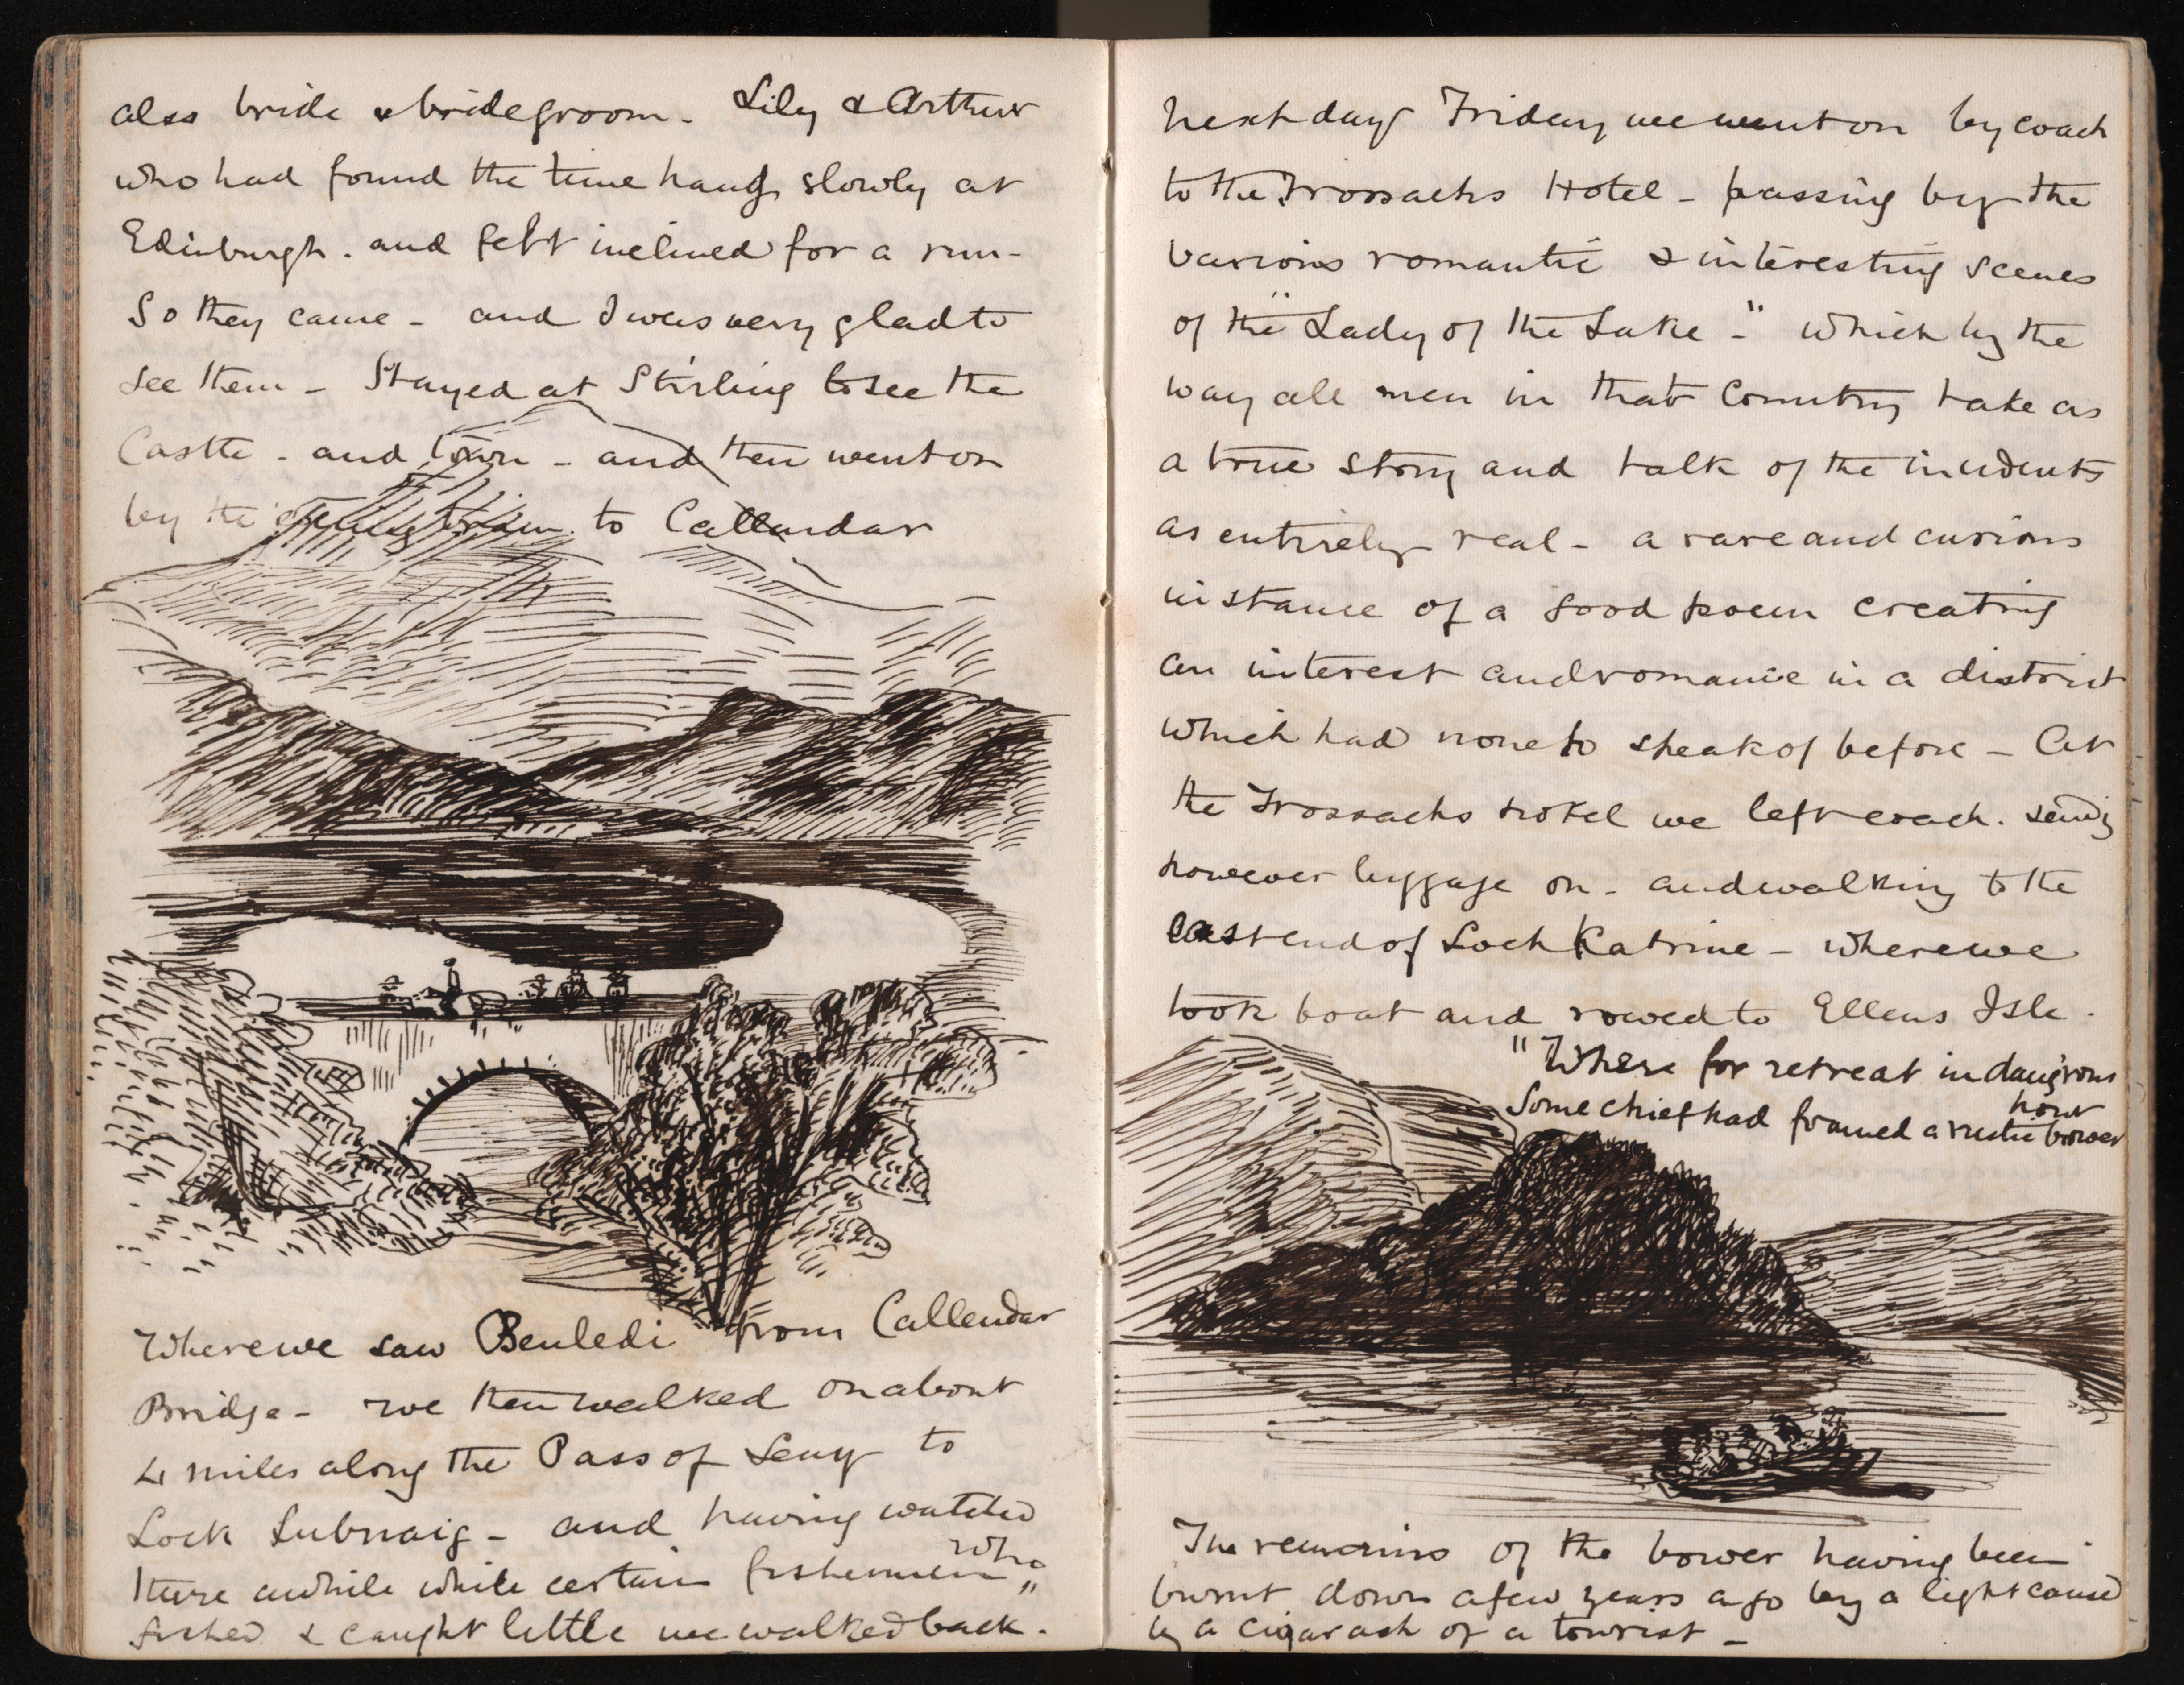 also bride & bridegroom - Lily & Arthur
who had found the time hang slowly at
Edinburgh. and felt inclined for a run -
So they came - and I was very glad to
see them - Stayed at Stirling to see the
Castle - and town - and then went on
by the evening train to Callendar
Where we saw Benledi from Callendar
Bridge - we then walked on about
4 miles along the Pass of Leny to
Loch Lubnaig - and having watched
there awhile while certain fishermen who
fished & caught little we walked back.
Next day Friday we went on by coach
to the Trossachs Hotel - passing by the
various romantic & interesting scenes
of the "Lady of the Lake -" which by the
way all men in that Country take as
a true story and talk of the incidents
as entirely real - a rare and curious
instance of a good poem creating
an interest and romance in a district
which had none to speak of before - At
the Trossachs hotel we left coach. sending
however luggage on - and walking to the
east end of Loch Katrine - where we
took boat and rowed to Ellens Isle -
"Where for retreat in dang'rous
hour
Some chief had framed a rustic bower
The remains of the bower having been
burnt down a few years ago by a light caused
by a cigar ash of a tourist -